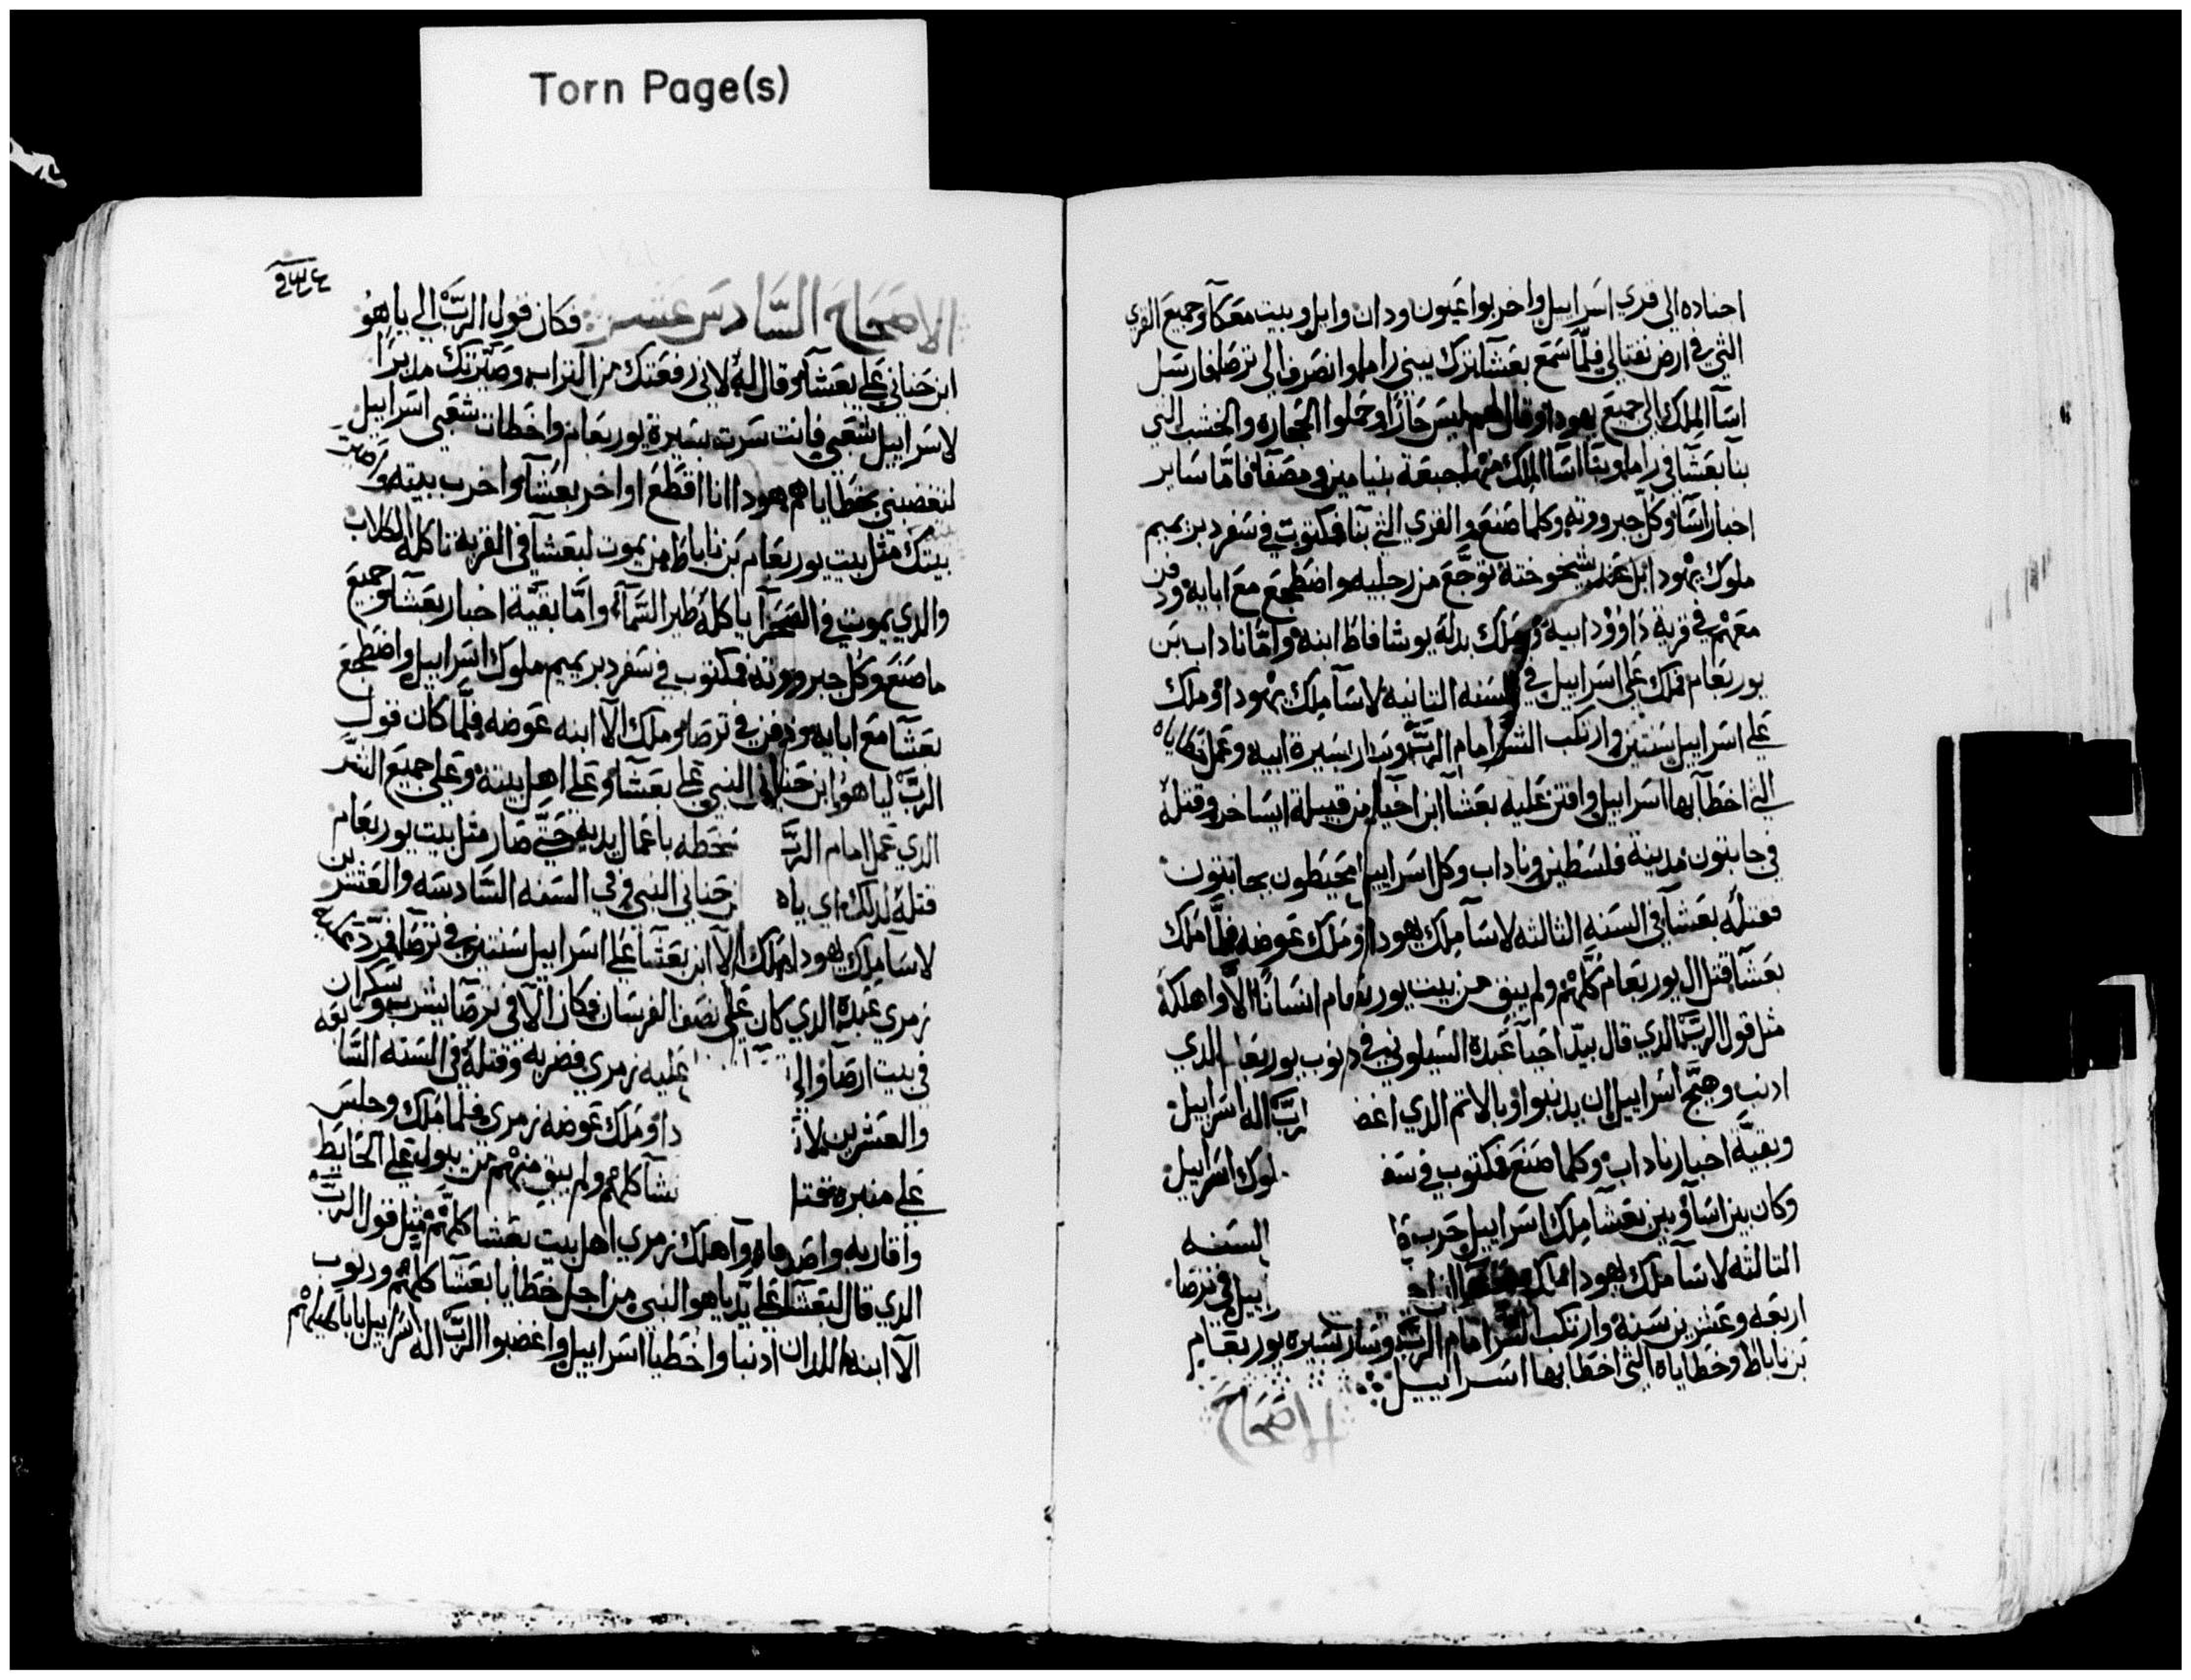 Torn Page(s)
اجناده الى قري اسراييل واخربوا عيون ودان وابل وبيت معكا وجميع القري
التي في ارض نفتالي فلما سمع بعشا ترك يبني راما وانصرف الى ترصا فارسل
اسا الملك الى جميع يهودا وقال لهم ليس جازا وحملوا الحجاره والخشب التي
بنا بعشا في راما وبنا اسا الملك منها جبعة بنيامين ومصفا فاما ساير
اخبار اسا وكل جبروته وكلما صنع والقري التي بنا فمكتوب في سفر دبريميم
ملوك يهودا بل عند شيخوخته توجع من رجليه واضطجع مع ابايه ودفن
معهم في قرية داوود ابيه وملك بدله يوشافاط ابنه واما ناداب بن
يوربعام فملك على اسراييل في السنه الثانيه لاسا ملك يهودا وملك
على اسراييل سنتين وارتكب الشر امام الرب وسار بسيرة ابيه وعمل خطاياه
التي اخطا بها اسراييل وافتن عليه بعشا ابن احيا من قبيلة ايساخر وقتله
في جابتون مدينة فلسطين وناداب وكل اسراييل محيطون بجابتون
فقتله بعشا في السنه الثالثه لاسا ملك يهودا وملك عوضه فلما ملك
بعشا قتل ال يوربعام كلهم ولم يبق من بيت يوربعام انسانا الا واهلكه
مثل قول الرب الذي قال بيد احيا عبده الشيلوني في دنوب يوربعام الدي
ادنب وهيج اسراييل ان يدنبوا وبالاتم الدي اغض رب اله اسراييل
وبقية اخبار ناداب وكلما صنع فمكتوب في سف لوك اسراييل
وكان بين اسا وبين بعشا ملك اسراييل حرب السنه
التالته لاسا ملك يهودا ملك ابن اح راييل في ترصا
اربعه وعشرين سنة وارتكب الشر امام الرب وسار بسيرة يوربعام
بن ناباط وخطاياه التي اخطا بها اسراييل
الاصحاح
الاصحاح السادس عشر فكان قول الرب الى ياهو
ابن حناني على بعشا وقال له لاني رفعتك من التراب وصيرتك مدبرا
لاسراييل شعبي فانت سرت بسيرة يوربعام واخطات شعبي اسراييل
لتغضبني بخطاياهم هودا انا اقطع اواخر بعشا واخرب بيته واصير
بيتك مثل بيت يوربعام بن ناباط من يموت لبعشا في القريه تاكله الكلاب
والدي يموت في الصحرا ياكله طير السماء واما بقية اخبار بعشا وجميع
ما صنع وكل جبروته فمكتوب في سفر دبريميم ملوك اسراييل واضطجع
بعشا مع ابايه ودفن في ترصا وملك الا ابنه عوضه فلما كان قول
الرب لياهوا ابن حناني النبي على بعشا وعلى اهل بيته وعلى جميع الشر
الدي عمل امام الرب سخطه باعمال يديه حتى صار مثل بيت يوربعام
قتله لدلك اي ياه بن حناني النبي وفي السنه السادسه والعشرين
لاسا ملك يهودا ملك الا ابن بعشا على اسراييل سنتين في ترصا فمرد عليه
زمري عبده الدي كان على نصف الفرسان فكان الا في ترصا يشرب وسكران
في بيت ارصا وال عليه زمري فضربه وقتله في السنه السابعه
والعشرين لا دا وملك عوضه زمري فلما ملك وجلس
على منبره فقتل عشا كلهم ولم يبق منهم من يبول على الحايط
واقاربه واصدقاه واهلك زمري اهل بيت بعشا كلهم مثل قول الرب
الدي قال لبعشا على يد ياهو النبي من اجل خطايا بعشا كلهم ودنوب
الا ابنه اللدان ادنبا واخطيا اسراييل واغضبوا الرب اله اسراييل باباطيلهم